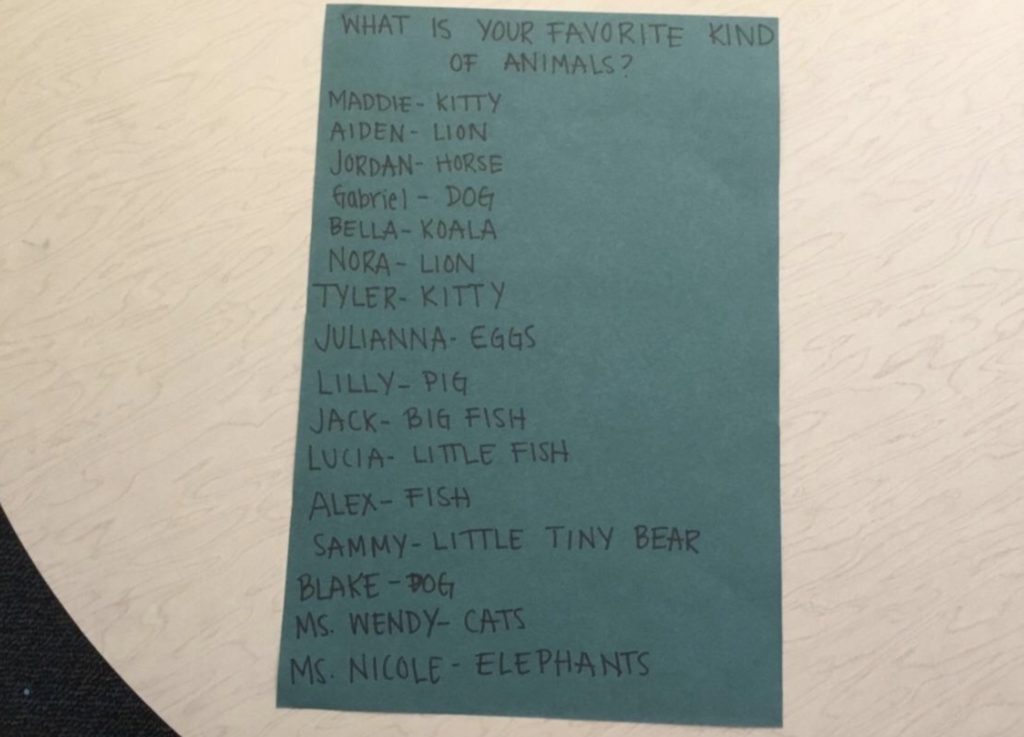 WHAT IS YOUR FAVORITE KIND
OF ANIMALS?
MADDIE- KITTY
AIDEN- LION
JORDAN- HORSE
Gabriel - DOG
BELLA- KOALA
NORA- LION
TYLER- KITTY
JULIANNA- EGGS
LILLY- PIG
JACK- BIG FISH
LUCIA- LITTLE FISH
ALEX- FISH
SAMMY- LITTLE TINY BEAR
BLAKE - DOG
MS. WENDY- CATS
MS. NICOLE - ELEPHANTS